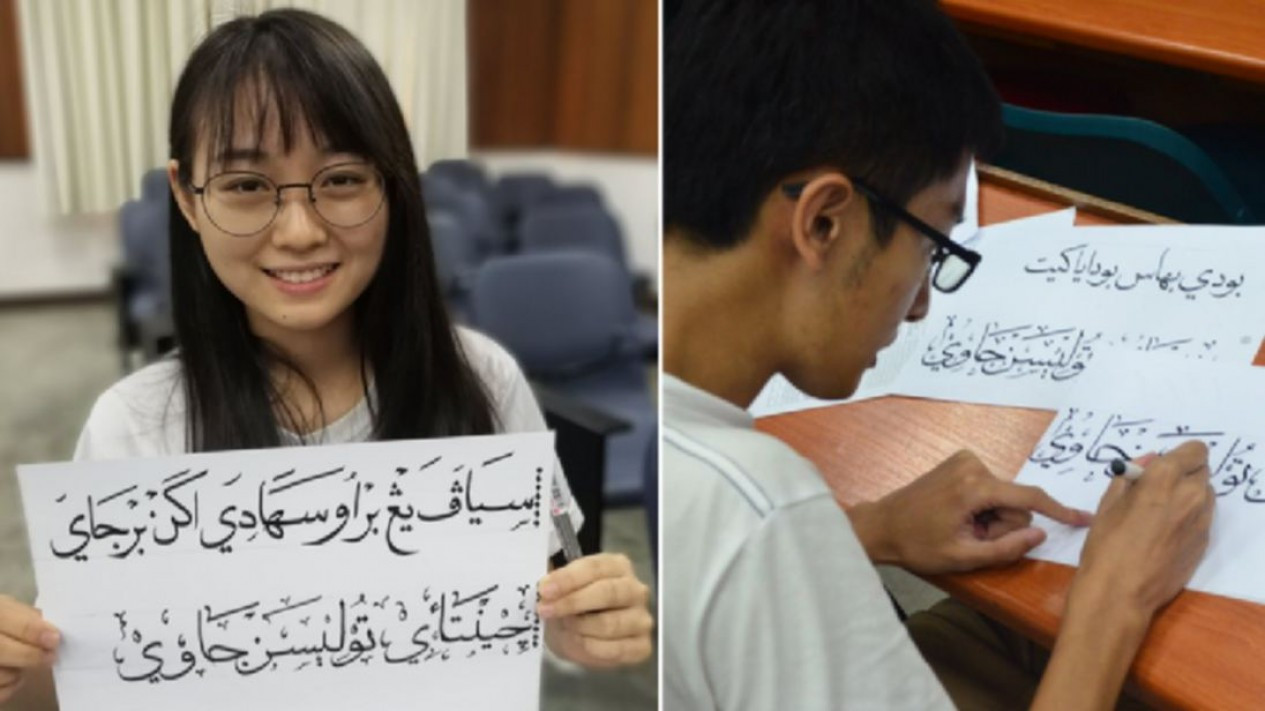 سِيَاڤَ يڠْ بَرْأُوسَهَا دِيَ اکَنْ بَرْجَايَ
چِيْنَتَائِيْ تُوْلِيْسَنْ جَاوِيْ
بودي بهاس بودايا کيت
تُوْلِيْسَنْ جَاوِيْ
تُوْلِيْسَنْ جَاوِيْ